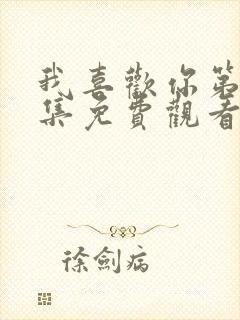 我喜歡你第
集免費觀看
徐劍病